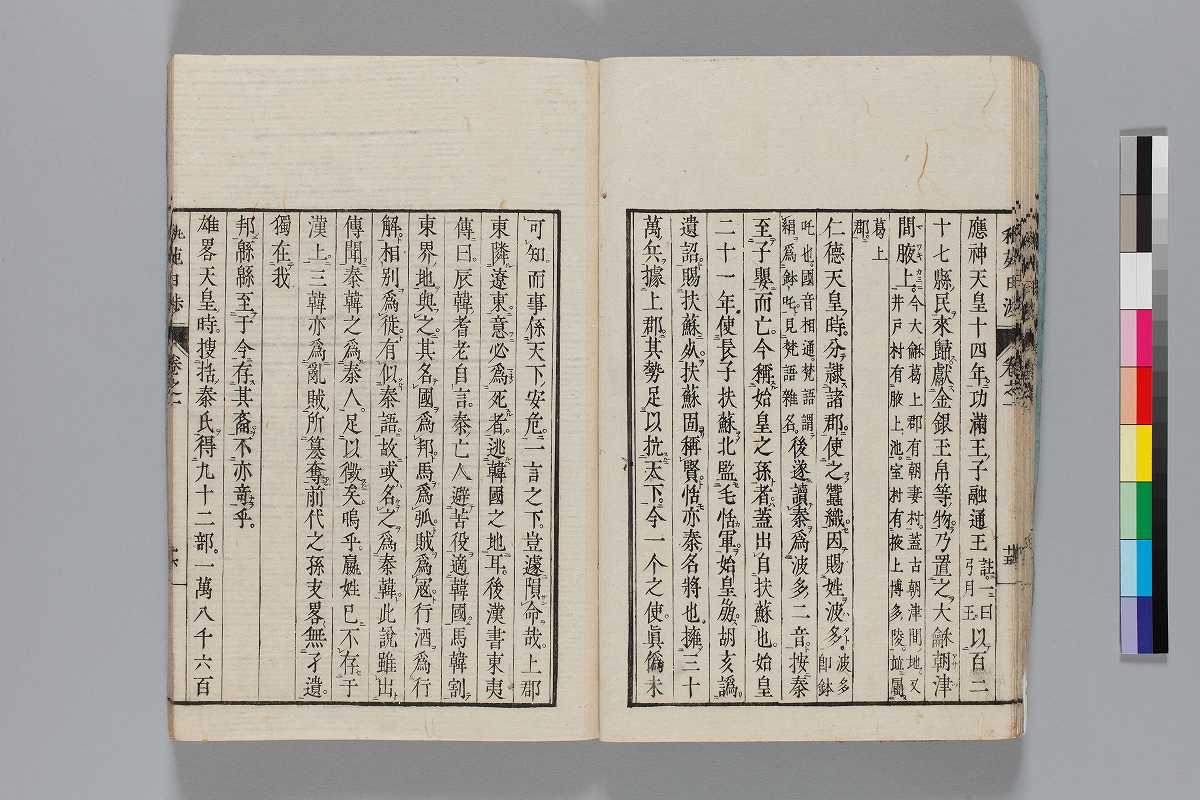 應神天皇十四年功滿王子融通王註一曰弓月王以百二
十七縣民來歸獻金銀王帛等物乃置之大龢朝津
間腋上今大龢葛上郡有朝妻村蓋古朝津間地又井戸村有腋上池室村有掖上博多陵並屬
葛上郡
仁德天皇時分隷諸郡使之蠶織因賜姓波多波多即鉢
吒也國音相通梵語謂絹爲鉢吒見梵語雜名後遂讀秦爲波多二音按秦
至子嬰而亡今稱始皇之孫者蓋出自扶蘇也始皇
二十一年使長子扶蘇北監毛恬軍始皇崩胡亥譌
遺詔賜扶蘇死扶蘇固稱賢恬亦秦名將也擁三十
萬兵據上郡其勢足以抗天下今一个之使眞僞未
可知而事係天下安危一言之下豈遽隕命哉上郡
東隣遼東意必爲死者逃韓國之地耳後漢書東夷
傳曰辰韓耆老自言秦亡人避苦役適韓國馬韓割
東界地與之其名國爲邦馬爲弧賊爲寇行酒爲行
解相別爲徙有似秦語故或名之爲秦韓此說雖出
傳聞秦韓之爲秦人足以徵矣嗚乎嬴姓已不存于
漢上三韓亦爲亂賊所簒奪前代之孫支畧無孑遺
獨在我
邦緜緜至于今存其裔不亦竒乎
雄畧天皇時搜括秦氏得九十二部一萬八千六百
卷之一